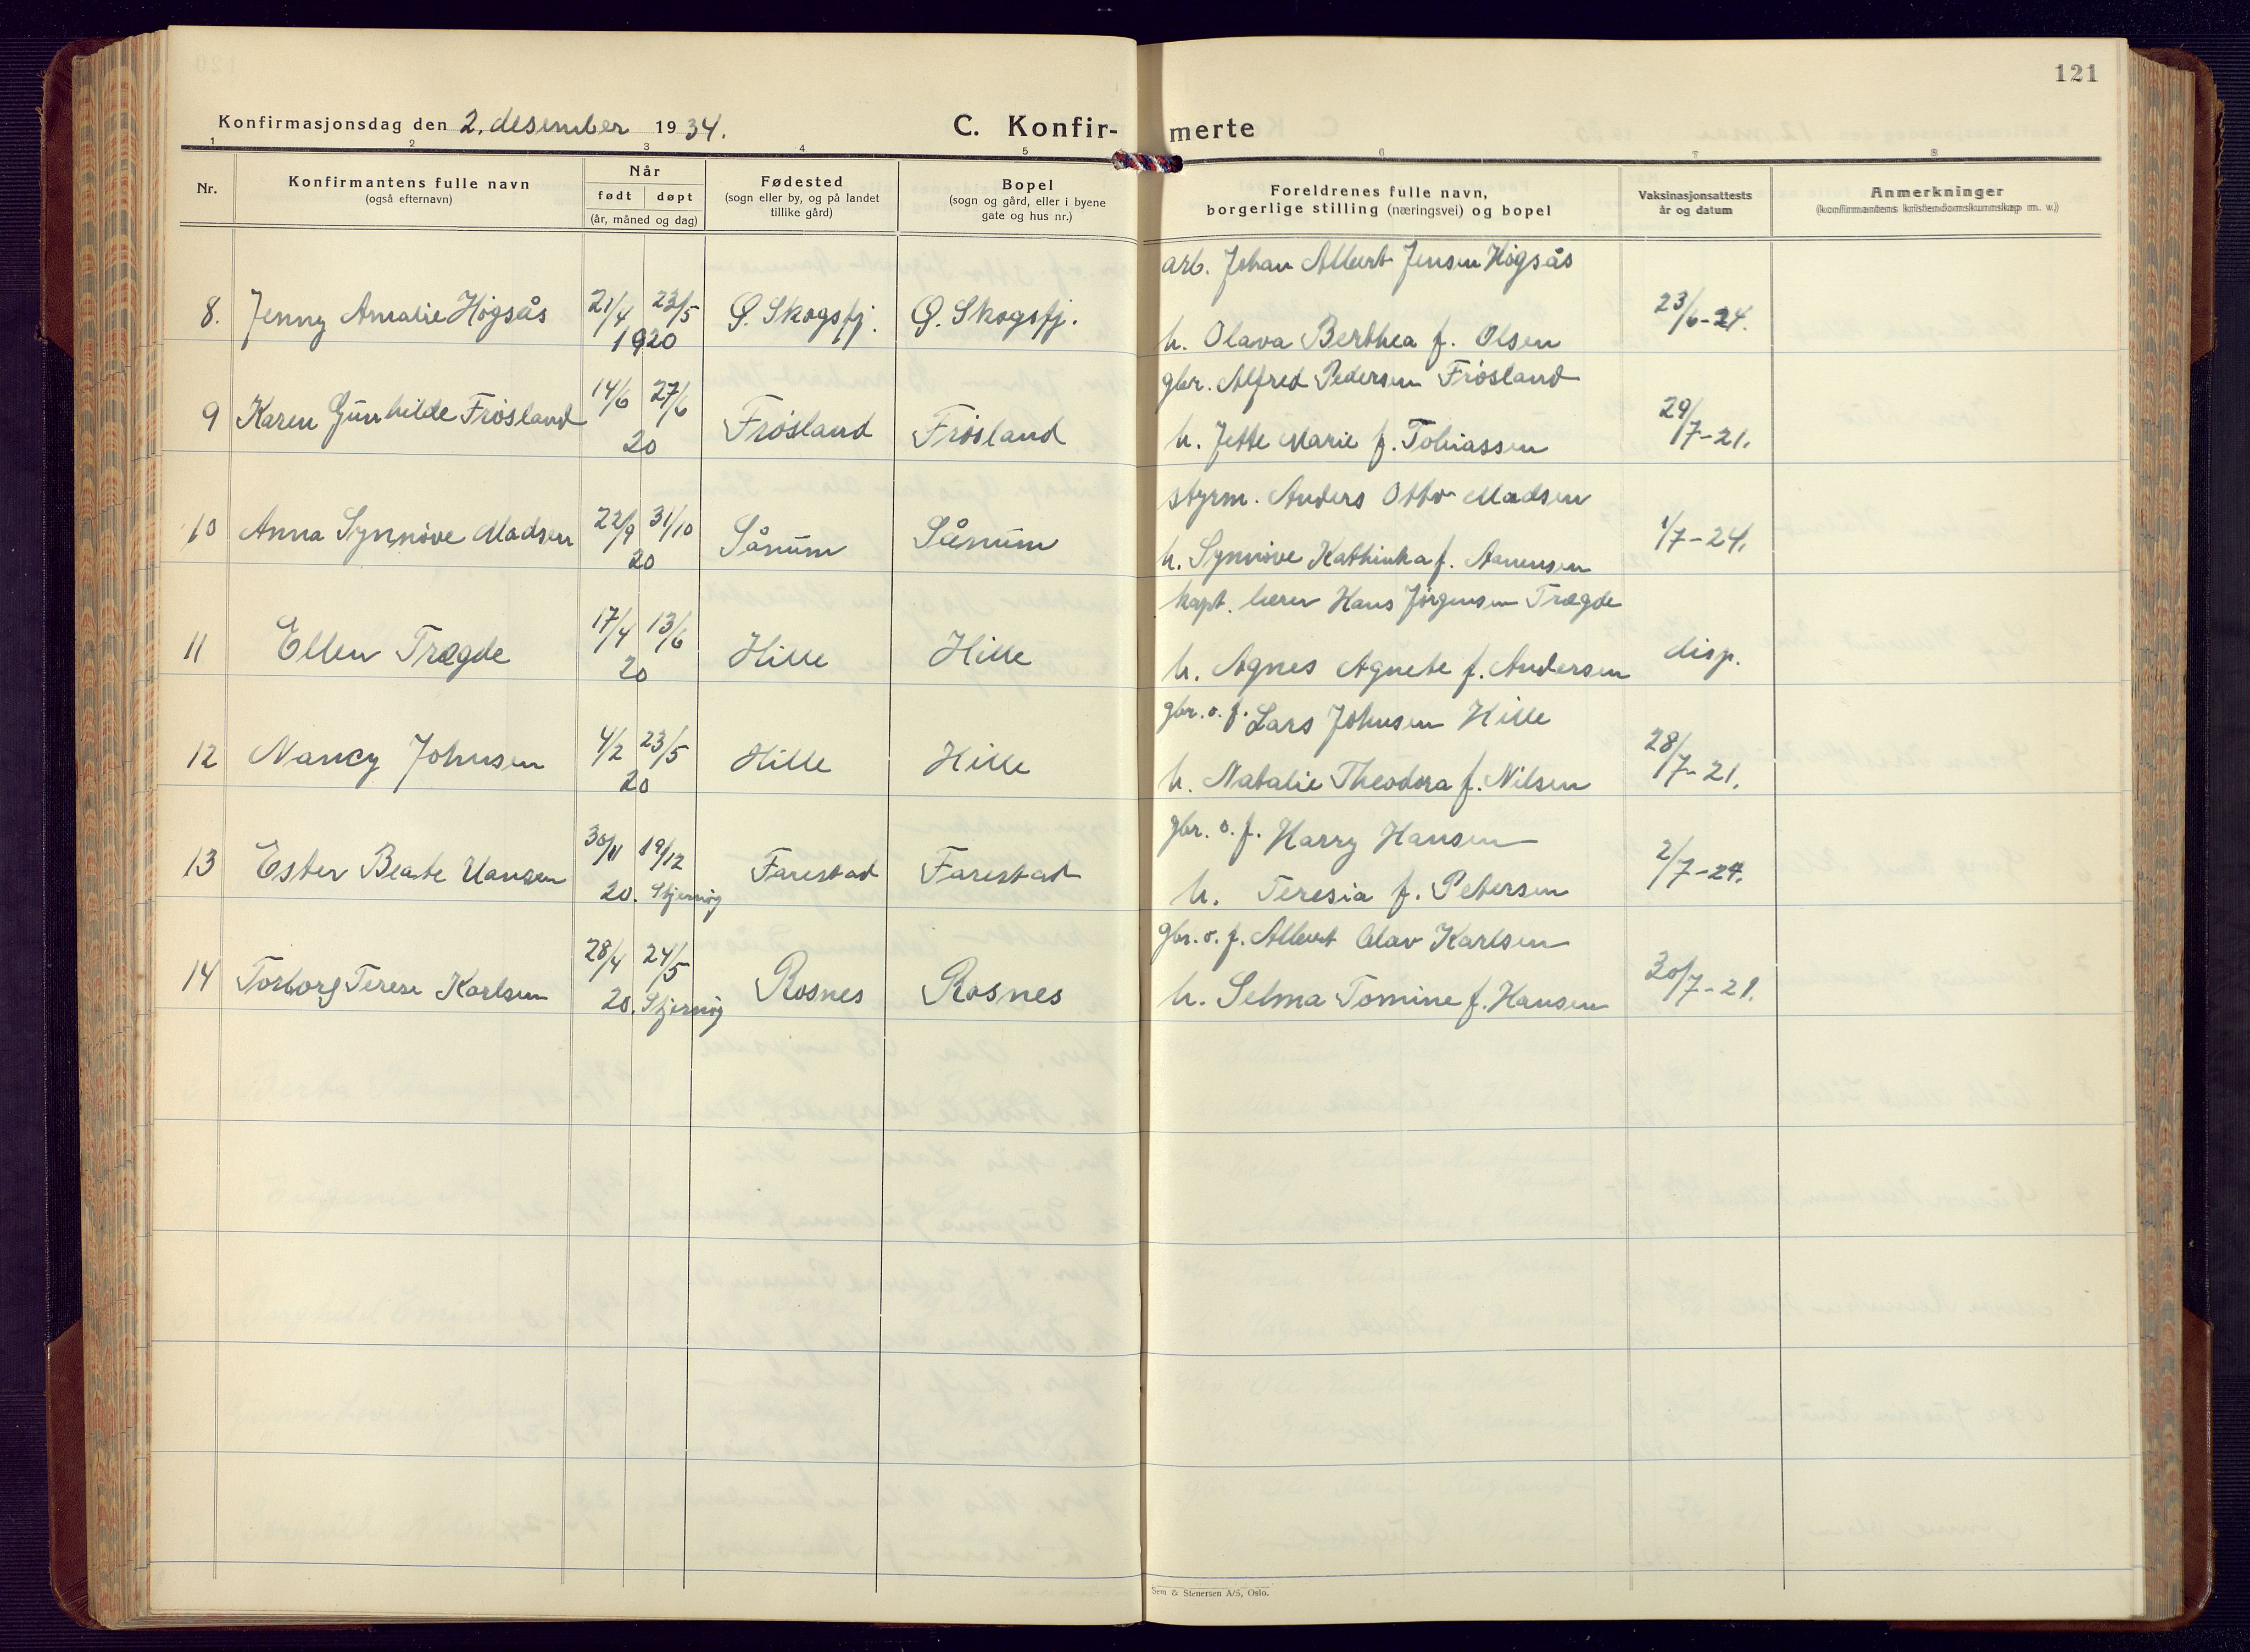 121
Konfirmasjonsdag den 2. desember 1934.
C. Konfir- merte
1 2 3 4 5 6 7 8
Nr.
Konfirmantens fulle navn
(også efternavn)
Når
født døpt
(år, måned og dag)
Fødested
(sogn eller by, og på landet
tillike gård)
Bopel
(sogn og gård, eller i byene
gate og hus nr.)
Foreldrenes fulle navn,
borgerlige stilling (næringsvei) og bopel
Vaksinasjonsattests
år og datum
Anmerkninger
(konfirmantens kristendomskunnskap m. v.)
arb. Johan Albert Jensen Høgsås
8. Jenny Amalie Høgsås 21/4 23/5 Ø. Skogsfj. Ø. Skogsfj. 23/6-24.
1920 h. Olava Berthea f. Olsen
gbr. Alfred Pedersen Frøsland
9 Karen Gunhilde Frøsland 14/6 27/6 Frøsland Frøsland 29/7-21.
20 h. Jette Marie f. Tobiassen
styrm. Anders Otto Madsen
10 Anna Synnøve Madsen 22/9 31/10 Sånum Sånum 1/7-24.
20 h. Synnøve Kathinka f. Aanensen
kapt. lærer Hans Jørgensen Trægde
11 Ellen Trægde 17/4 13/6 Hille Hille disp.
20 h. Agnes Agnete f. Andersen
gbr. o. f. Lars Johnsen Hille
12 Nancy Johnsen 4/2 23/5 Hille Hille 28/7-21.
20 h. Natalie Theodora f. Nilsen
gbr. o. f. Harry Hansen
13 Ester Beate Hansen 30/11 19/12 Farestad Farestad 2/7-24.
20. Stjernøy h. Teresia f. Petersen
gbr. o. f. Albert Olav Karlsen
14 Torborg Terese Karlsen 28/4 24/5 Rosnes Rosnes 30/7-21.
20. Stjernøy h. Selma Tomine f. Hansen
Sem & Stenersen A/S, Oslo.